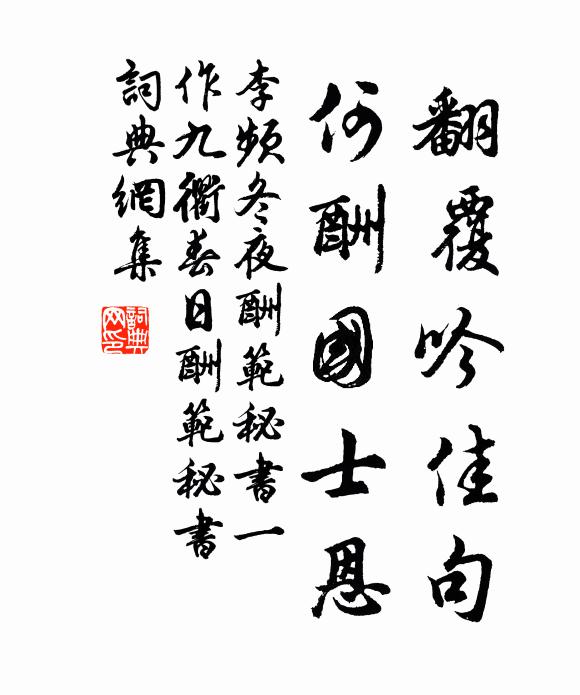 翻覆吟佳句
何酬國士恩
李頻冬夜酬範秘書一
作九衢春日酬範秘書
詞典網集
詞典网印